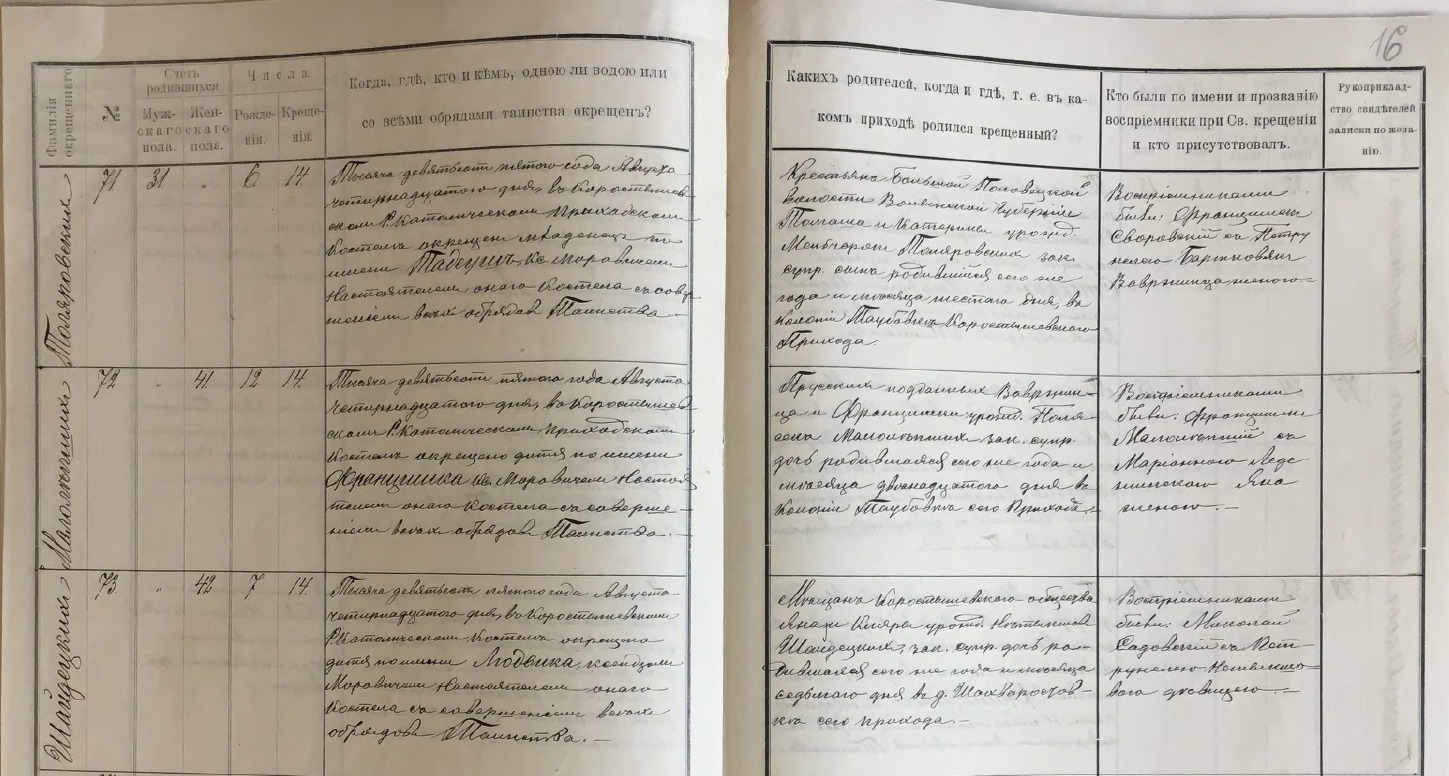 16
Фамилія окрещеннаго.
№
Счетъ родившихся
Муж-
скаго
пола.
Жен-
скаго
пола.
Числа.
Рожде-
нія.
Креще-
нія.
Когда, гдѣ, кто и кѣмъ, одною ли водою или
со всѣми обрядами таинства окрещенъ?
Какихъ родителей, когда и гдѣ, т. е. въ ка-
комъ приходѣ родился крещенный?
Кто были по имени и прозванію
воспріемники при Св. крещеніи
и кто присутствовалъ.
Рукоприклад-
ство свидѣтелей
записки по жела-
нію.
71
31
"
6
14
Тысяча девятьсот пятого года Августа
четырнадцатого дня, въ Коростышев-
ском Р. Католическом Приходском
Костелѣ окрещен младенец по
имени Тадеушъ, Кс. Моровичем
Настоятелем онаго Костела с совер-
шением всѣх обрядов Таинства.—
Крестьянъ Большой Половецкой
волости Волынской губерніи
Томаша и Катерины урожд.
зак.
супр. сына родившійся сего же
года и мѣсяца шестого дня, въ
колоніи Коростышевского
Прихода.
Воспріемниками
были: Францишек
Своровскій съ Петру
нелею
женою—
72
"
41.
12
14.
Тысяча девятьсот пятого года Августа
четырнадцатого дня, въ Коростышев
ском Р. Католическом Приходском
Костелѣ окрещено дитя по имени
Францишка Кс. Моровичем Настоя
телем онаго Костела с соверше-
ніем всѣх обрядов Таинства.—
Прусских подданных Вавржин-
ца и Францишки урожд.
зак. супр.
дочь родившаяся сего же года и
мѣсяца двенадцатого дня въ
колоніи сего Прихода.
Воспріемниками
были: Францишек
съ
Маріанною
Яна
женою.—
73.
"
42
7
14.
Тысяча девятьсот пятого года Августа
четырнадцатого дня, въ Коростышевском
Р. Католическом Костелѣ окрещено
дитя по имени Людвика, ксендзом
Моровичем Настоятелем онаго
Костела съ совершеніем всѣх
обрядов Таинства.—
Шайдецких
Мѣщанъ Коростышевского общества
урожд.
Шайдецких, зак. супр. дочь ро-
дившаяся сего же года и мѣсяца
седьмаго дня въ д. Шахворостов-
кѣ сего прихода.—
Воспріемниками
были: Николай
Садовскій съ Пет-
рунелею
девицею—